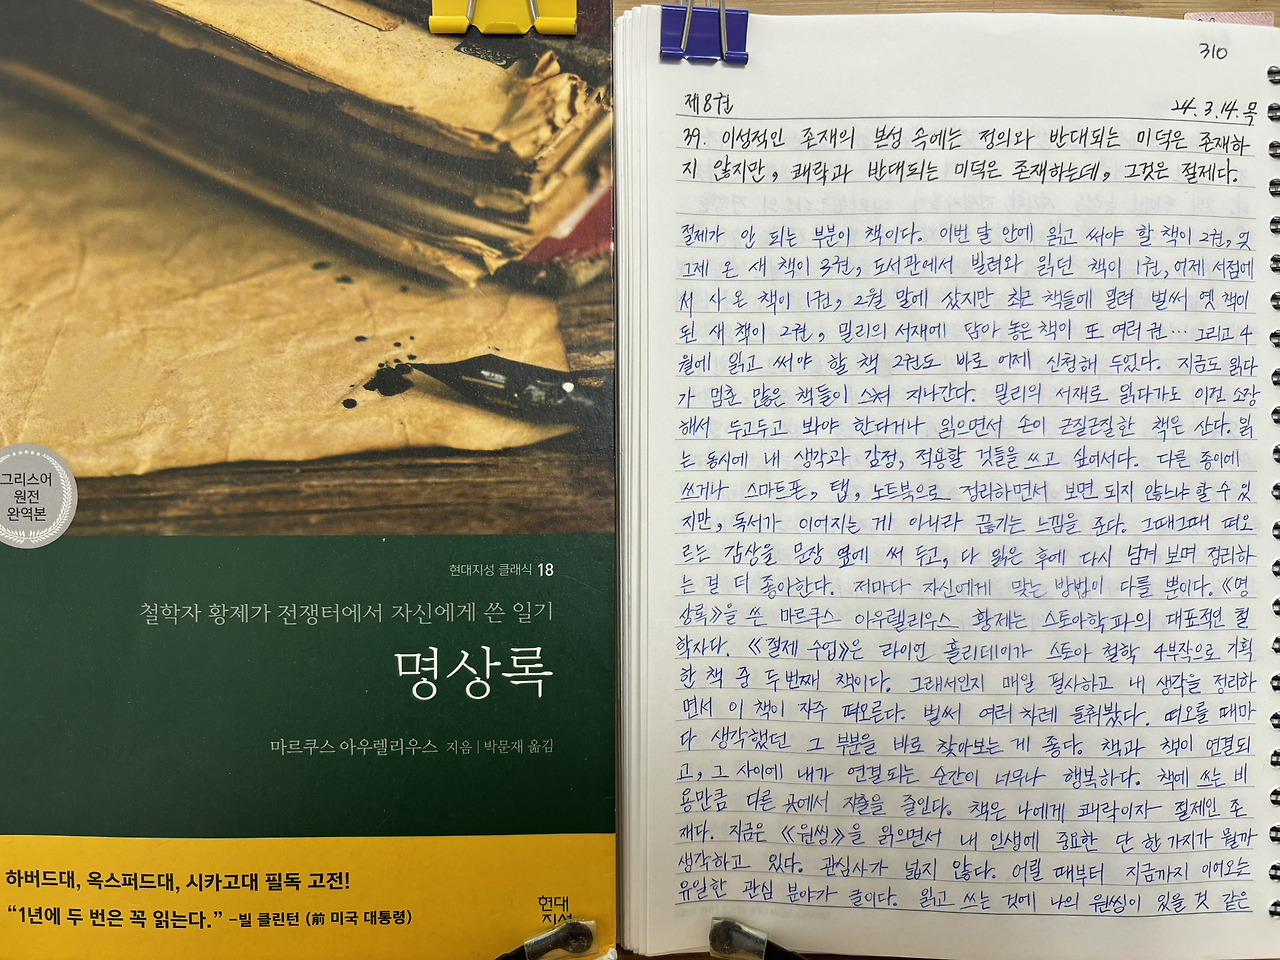 그리스어
원전
완역본
현대지성 클래식 18
철학자 황제가 전쟁터에서 자신에게 쓴 일기
명상록
마르쿠스 아우렐리우스 지음 | 박문재 옮김
하버드대, 옥스퍼드대, 시카고대 필독 고전!
“1년에 두 번은 꼭 읽는다.” –빌 클린턴 (前 미국 대통령)
현대
지성
310
제8권
24. 3. 14. 목
39. 이성적인 존재의 본성 속에는 정의와 반대되는 미덕은 존재하
지 않지만, 쾌락과 반대되는 미덕은 존재하는데, 그것은 절제다.
절제가 안 되는 부분이 책이다. 이번 달 안에 읽고 써야 할 책이 2권, 엊
그제 온 새 책이 3권, 도서관에서 빌려와 읽던 책이 1권, 어제 서점에
서 사 온 책이 1권, 2월 말에 샀지만 최근 책들에 밀려 벌써 옛 책이
된 새 책이 2권, 밀리의 서재에 담아 놓은 책이 또 여러 권… 그리고 4
월에 읽고 써야 할 책 2권도 바로 어제 신청해 두었다. 지금도 읽다
가 멈춘 많은 책들이 스쳐 지나간다. 밀리의 서재로 읽다가도 이건 소장
해서 두고두고 봐야 한다거나 읽으면서 손이 근질근질한 책은 산다. 읽
는 동시에 내 생각과 감정, 적용할 것들을 쓰고 싶어서다. 다른 종이에
쓰거나 스마트폰, 탭, 노트북으로 정리하면서 보면 되지 않느냐 할 수 있
지만, 독서가 이어지는 게 아니라 끊기는 느낌을 준다. 그때그때 떠오
르는 감상을 문장 옆에 써 두고, 다 읽은 후에 다시 넘겨 보며 정리하
는 걸 더 좋아한다. 저마다 자신에게 맞는 방법이 다를 뿐이다. 《명
상록》을 쓴 마르쿠스 아우렐리우스 황제는 스토아학파의 대표적인 철
학자다. 《절제 수업》은 라이언 홀리데이가 스토아 철학 4부작으로 기획
한 책 중 두번째 책이다. 그래서인지 매일 필사하고 내 생각을 정리하
면서 이 책이 자주 떠오른다. 벌써 여러 차례 들춰봤다. 떠오를 때마
다 생각했던 그 부분을 바로 찾아보는 게 좋다. 책과 책이 연결되
고, 그 사이에 내가 연결되는 순간이 너무나 행복하다. 책에 쓰는 비
용만큼 다른 곳에서 지출을 줄인다. 책은 나에게 쾌락이자 절제인 존
재다. 지금은 《원씽》을 읽으면서 내 인생에 중요한 단 한 가지가 뭘까
생각하고 있다. 관심사가 넓지 않다. 어릴 때부터 지금까지 이어오는
유일한 관심 분야가 글이다. 읽고 쓰는 것에 나의 원씽이 있을 것 같은